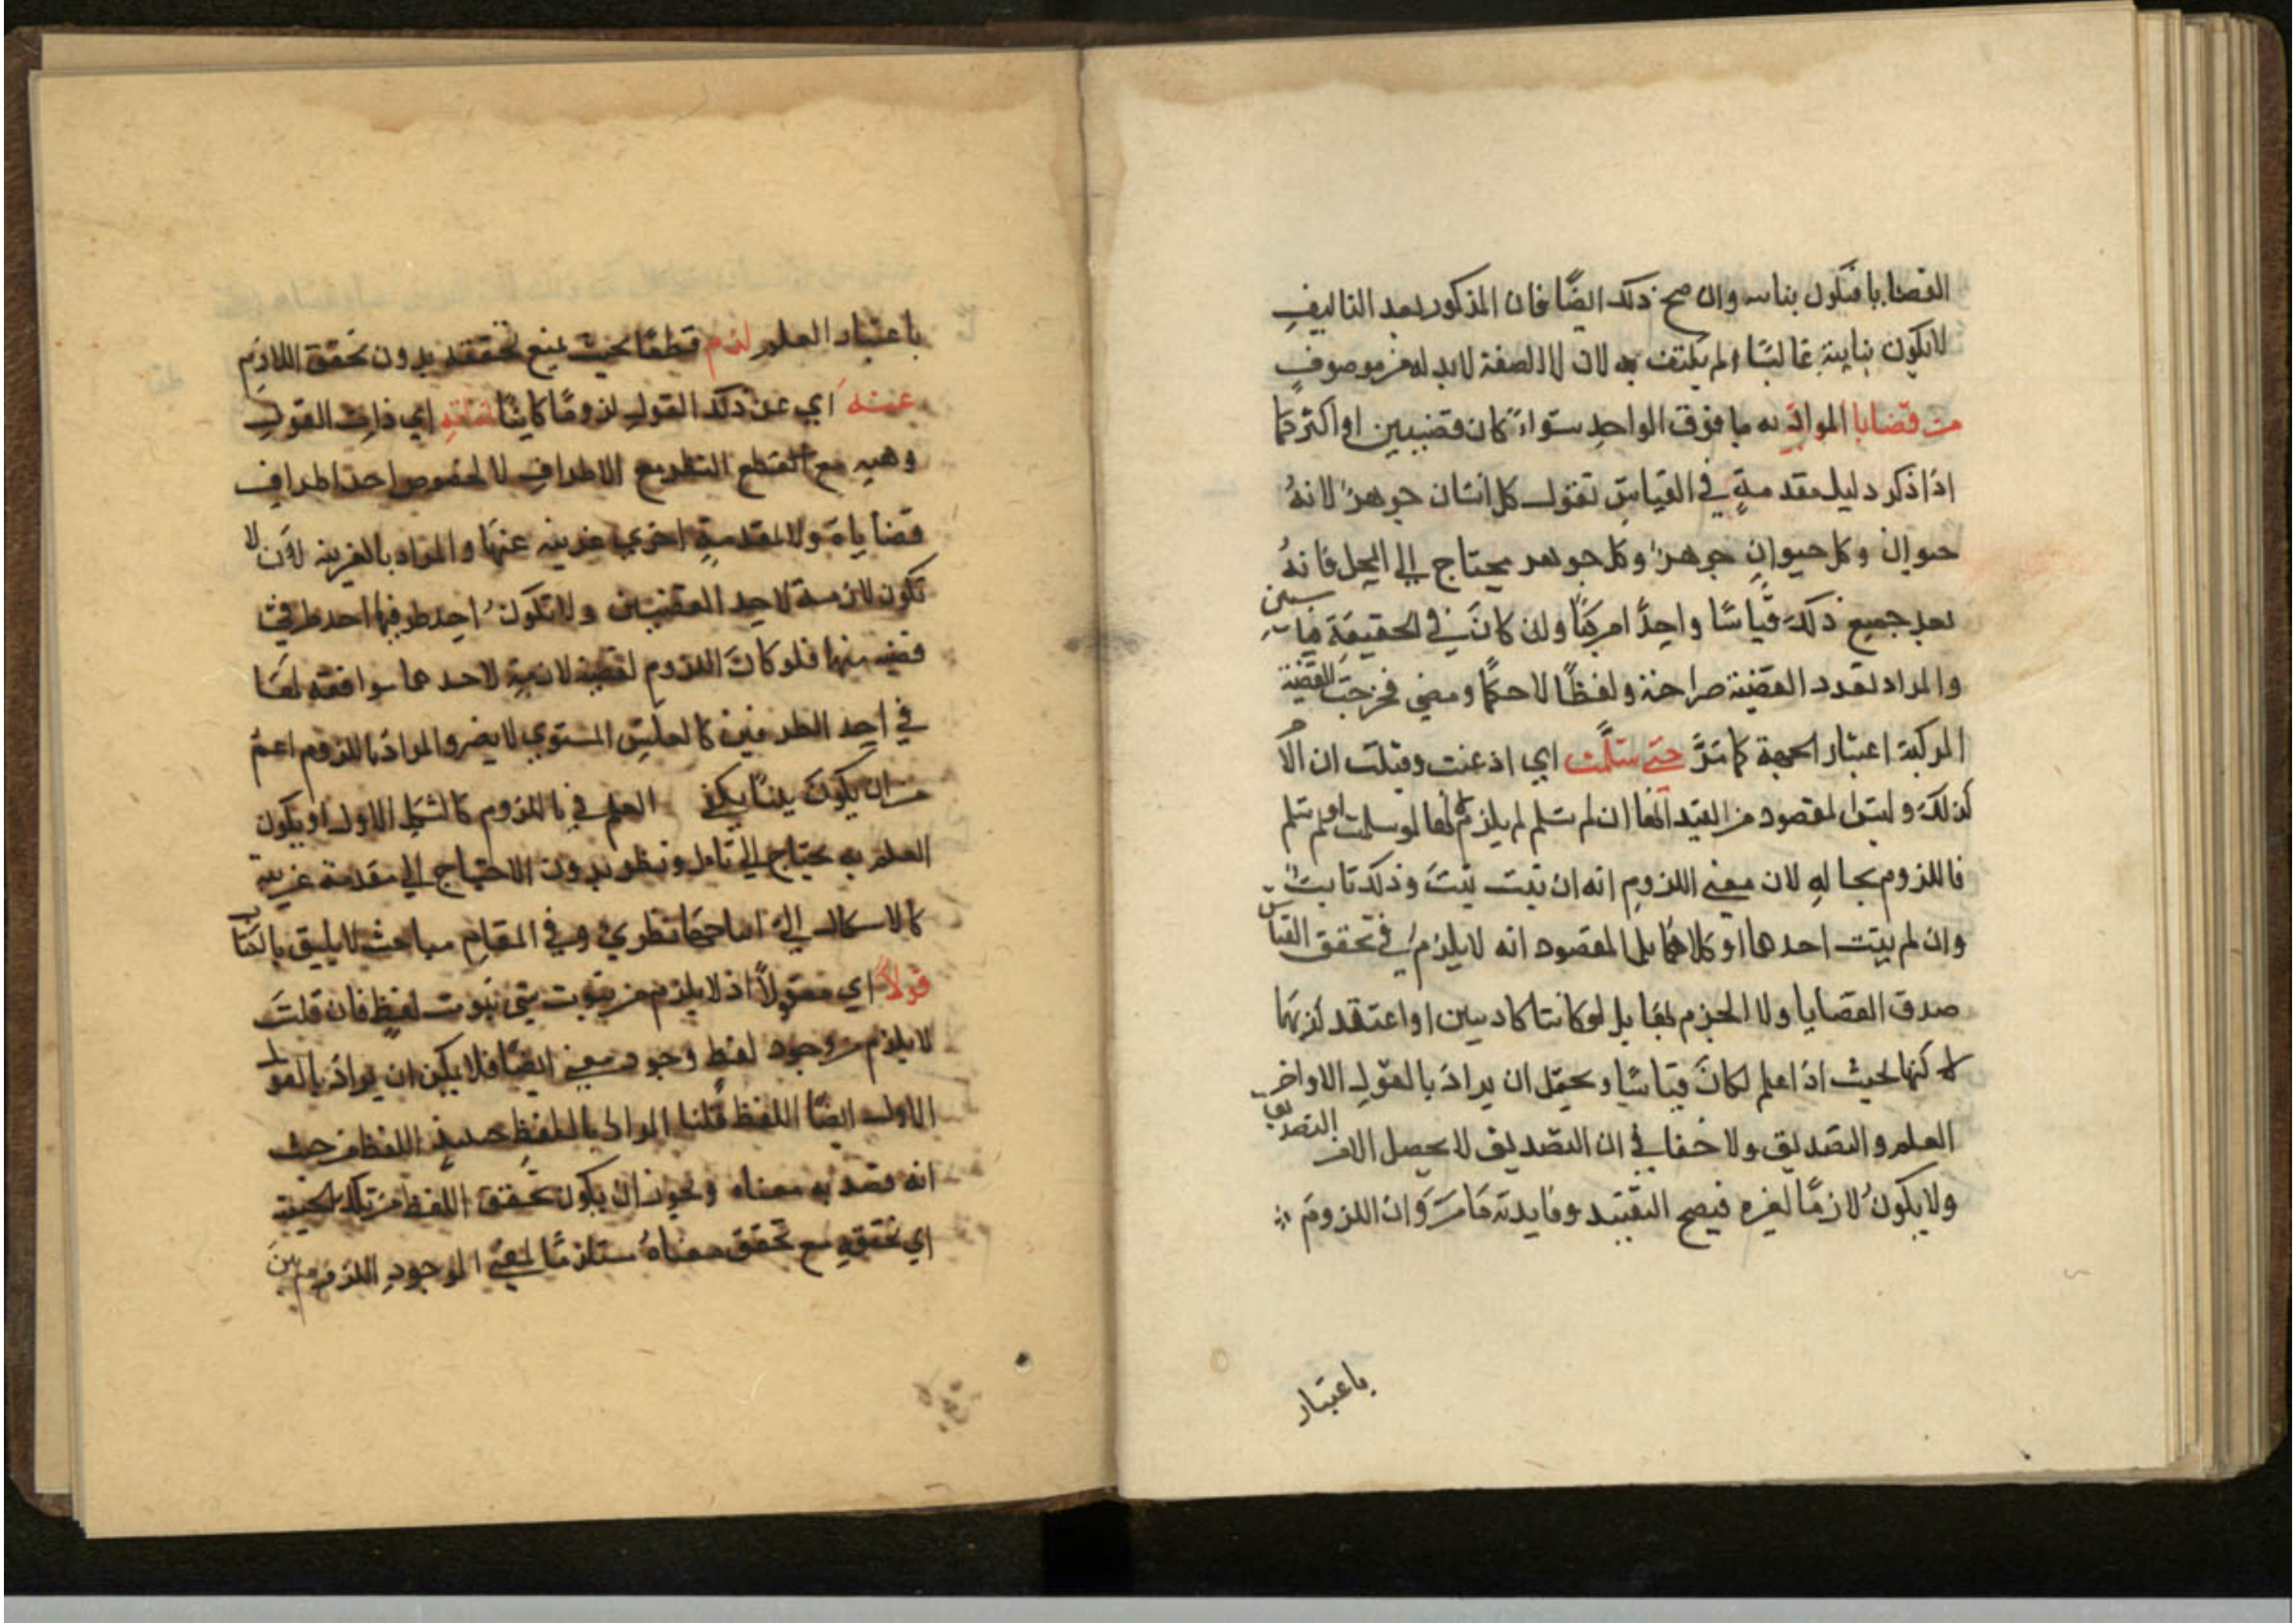 القضايا فتكون بنا وان صح ذلك ايضًا فان المذكور بعد التاليف
لا يكون بناية غالبًا ولم يكتف به لان الصفة لا بد له من موصوف
من قضايا المراد به ما فوق الواحد سواءً كان قضيتين او اكثر كما
اذا ذكر دليل مقدمةٍ في القياس تقول كل انسان جوهرٌ لانهُ
حيوان وكل حيوانٍ جوهرٌ وكل جوهر يحتاج الي المحل فانهُ
بعد جميع ذلك قياسًا واحدًا مركبًا وان كان في الحقيقة قياسين
والمراد تعدد القضية صراحة ولفظًا لا حكمًا ومعني فخرجت القضية
المركبة اعتبار الجهة كما مَرَّ متي سلمت اي اذعنت وقبلت ان الامر
كذلك وليس المقصود من القيد انها ان لم تسلم لم يلزم لانها لو سلمت او لم تسلم
فاللزوم بحاله لان معني اللزوم انه ان ثبت ثبت وذلك ثابت
وان لم يثبت احدهما او كلاهما بل المقصود انه لا يلزم في تحقق القياس
صدق القضايا ولا الجزم بها بل لو كانتا كاذبين او اعتقد كذبهما
لكنها بحيث اذا علم لكان قياسًا ويحتمل ان يراد بالقول الاواخر
العلم والتصديق ولا خفا في ان التصديق لا يحصل الا من التصديق
ولا يكونُ لازمًا لغيره فيصح التقييد وفايدته مَا مرَّ وان اللزوم
باعتبار
باعتبار العلم لزم قطعًا بحيث يمنع تحققه بدون تحقق اللازم
عنه اي عن ذلك القول لزومًا كاينًا لذاته اي ذات القول
وهيه مع القطع النظر مع الاطراف لا لخصوص احد اطراف
قضاياه ولا لمقدمةٍ اخري غريبه عنها والمراد بالغريبه لان لا
تكون لازمة لاحد القضيتين ولا تكونُ احد طرفيها احد طرفي
قضيه منها فلو كان اللزوم لقضية لازمةٍ لاحدهما موافقه لها
في احد الطرفين كالعكس المستوي لا يضر والمراد باللزوم اعم
من ان يكون بينًا يكفي العلم في باللزوم كالشكل الاول او يكون
العلم به يحتاج الي تامل ونظر بدون الاحتياج الي مقدمة غريبة
كالاشكال نظري وفي المقام مباحث لا يليق بالكتاب
قولاً اي معقولاً اذ لا يلزم من ثبوت شي ثبوت لفظٍ فان قلت
لا يلزم من وجود لفظ وجود معني ايضًا فلا يمكن ان يراد بالقول
الاول ايضًا اللفظ قلنا المراد باللفظ حينئذ اللفظ من حيث
انه قصد به معناه ويجوز ان يكون تحقق اللفظ من تلك الحيثية
اي تحققهِ مع تحقق معناهُ مستلزمًا لمعني الموجود اللزوم بين